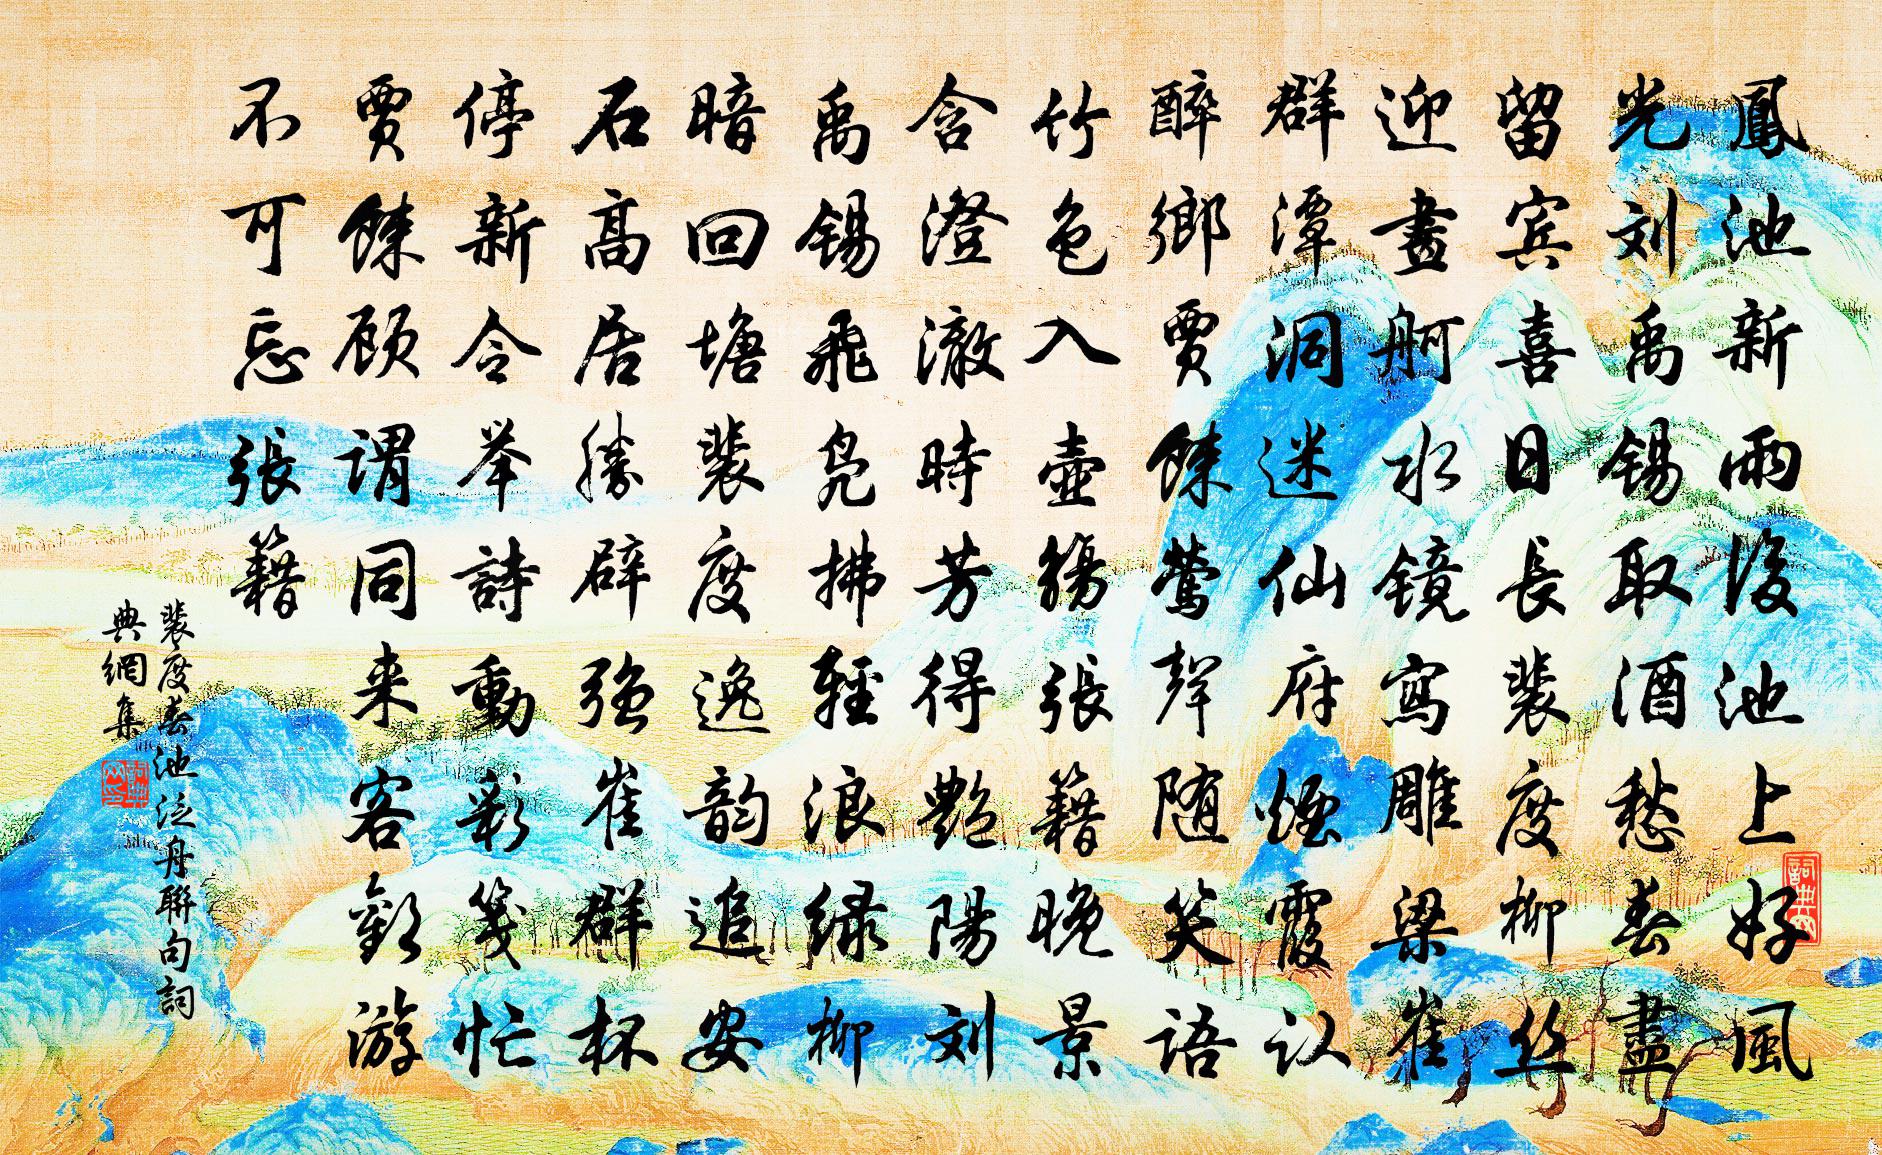 鳳池新雨後池上好風
光刘禹锡取酒愁春盡
留宾喜日長裴度柳丝
迎畫舸水镜寫雕梁崔
群潭洞迷仙府煙霞认
醉鄉賈餗莺聲随笑语
竹色入壺觞張籍晚景
含澄澈時芳得艷陽刘
禹锡飛凫拂輕浪绿柳
暗回塘裴度逸韵追安
石高居勝辟强崔群杯
停新令举詩動彩笺忙
賈餗顾謂同来客歡游
不可忘張籍
裴度春池泛舟聯句詞
典網集